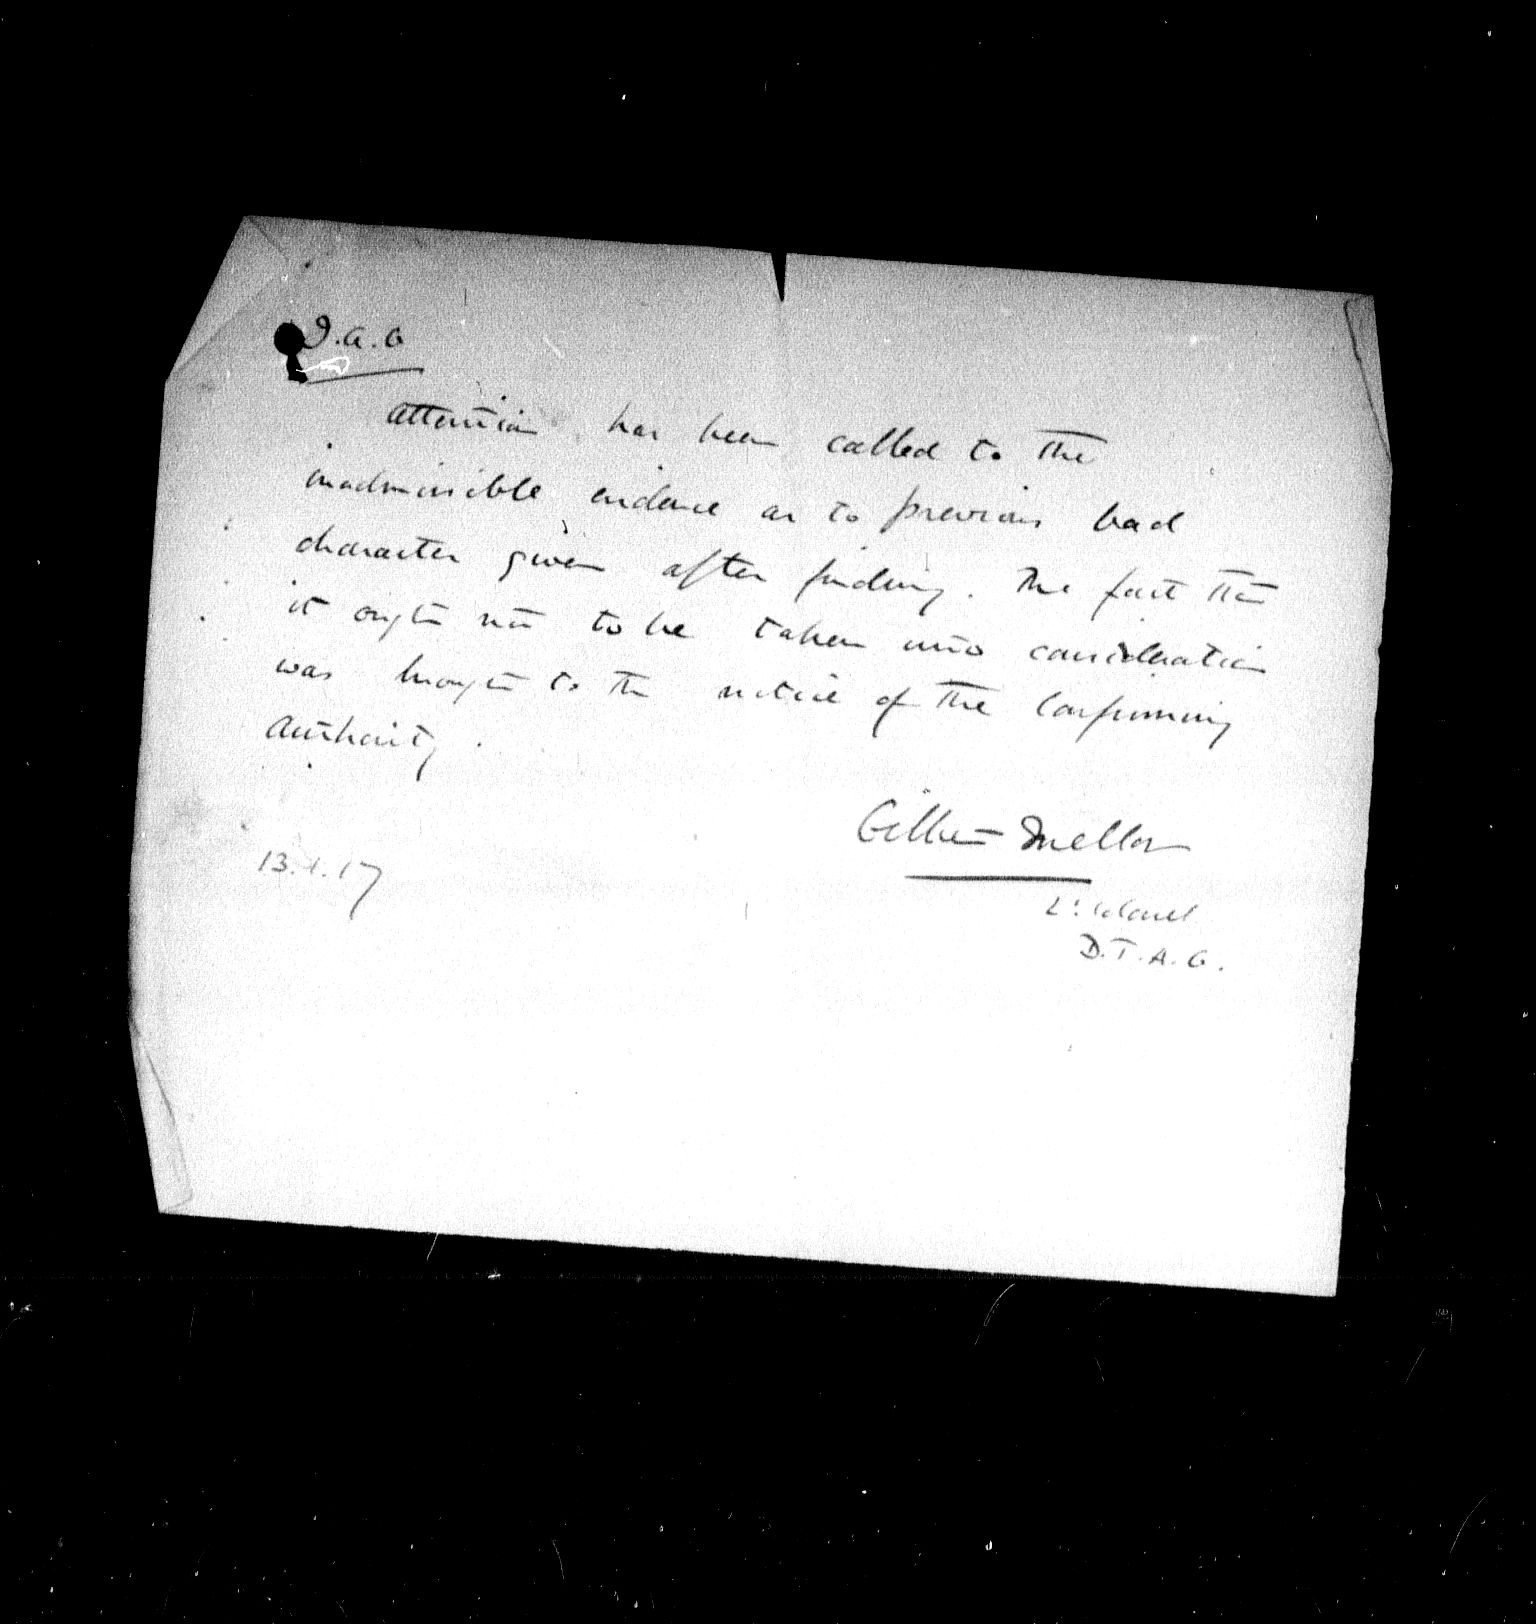 J.A.G
Attention has been called to the
inadmissible evidence as to previous bad
character given after finding. The fact that
it ought not to be taken into consideration
was brought to the notice of the Confirming
Authority.
Gilbert Mellor
13.1.17
Lt. Colonel
D.J.A.G.